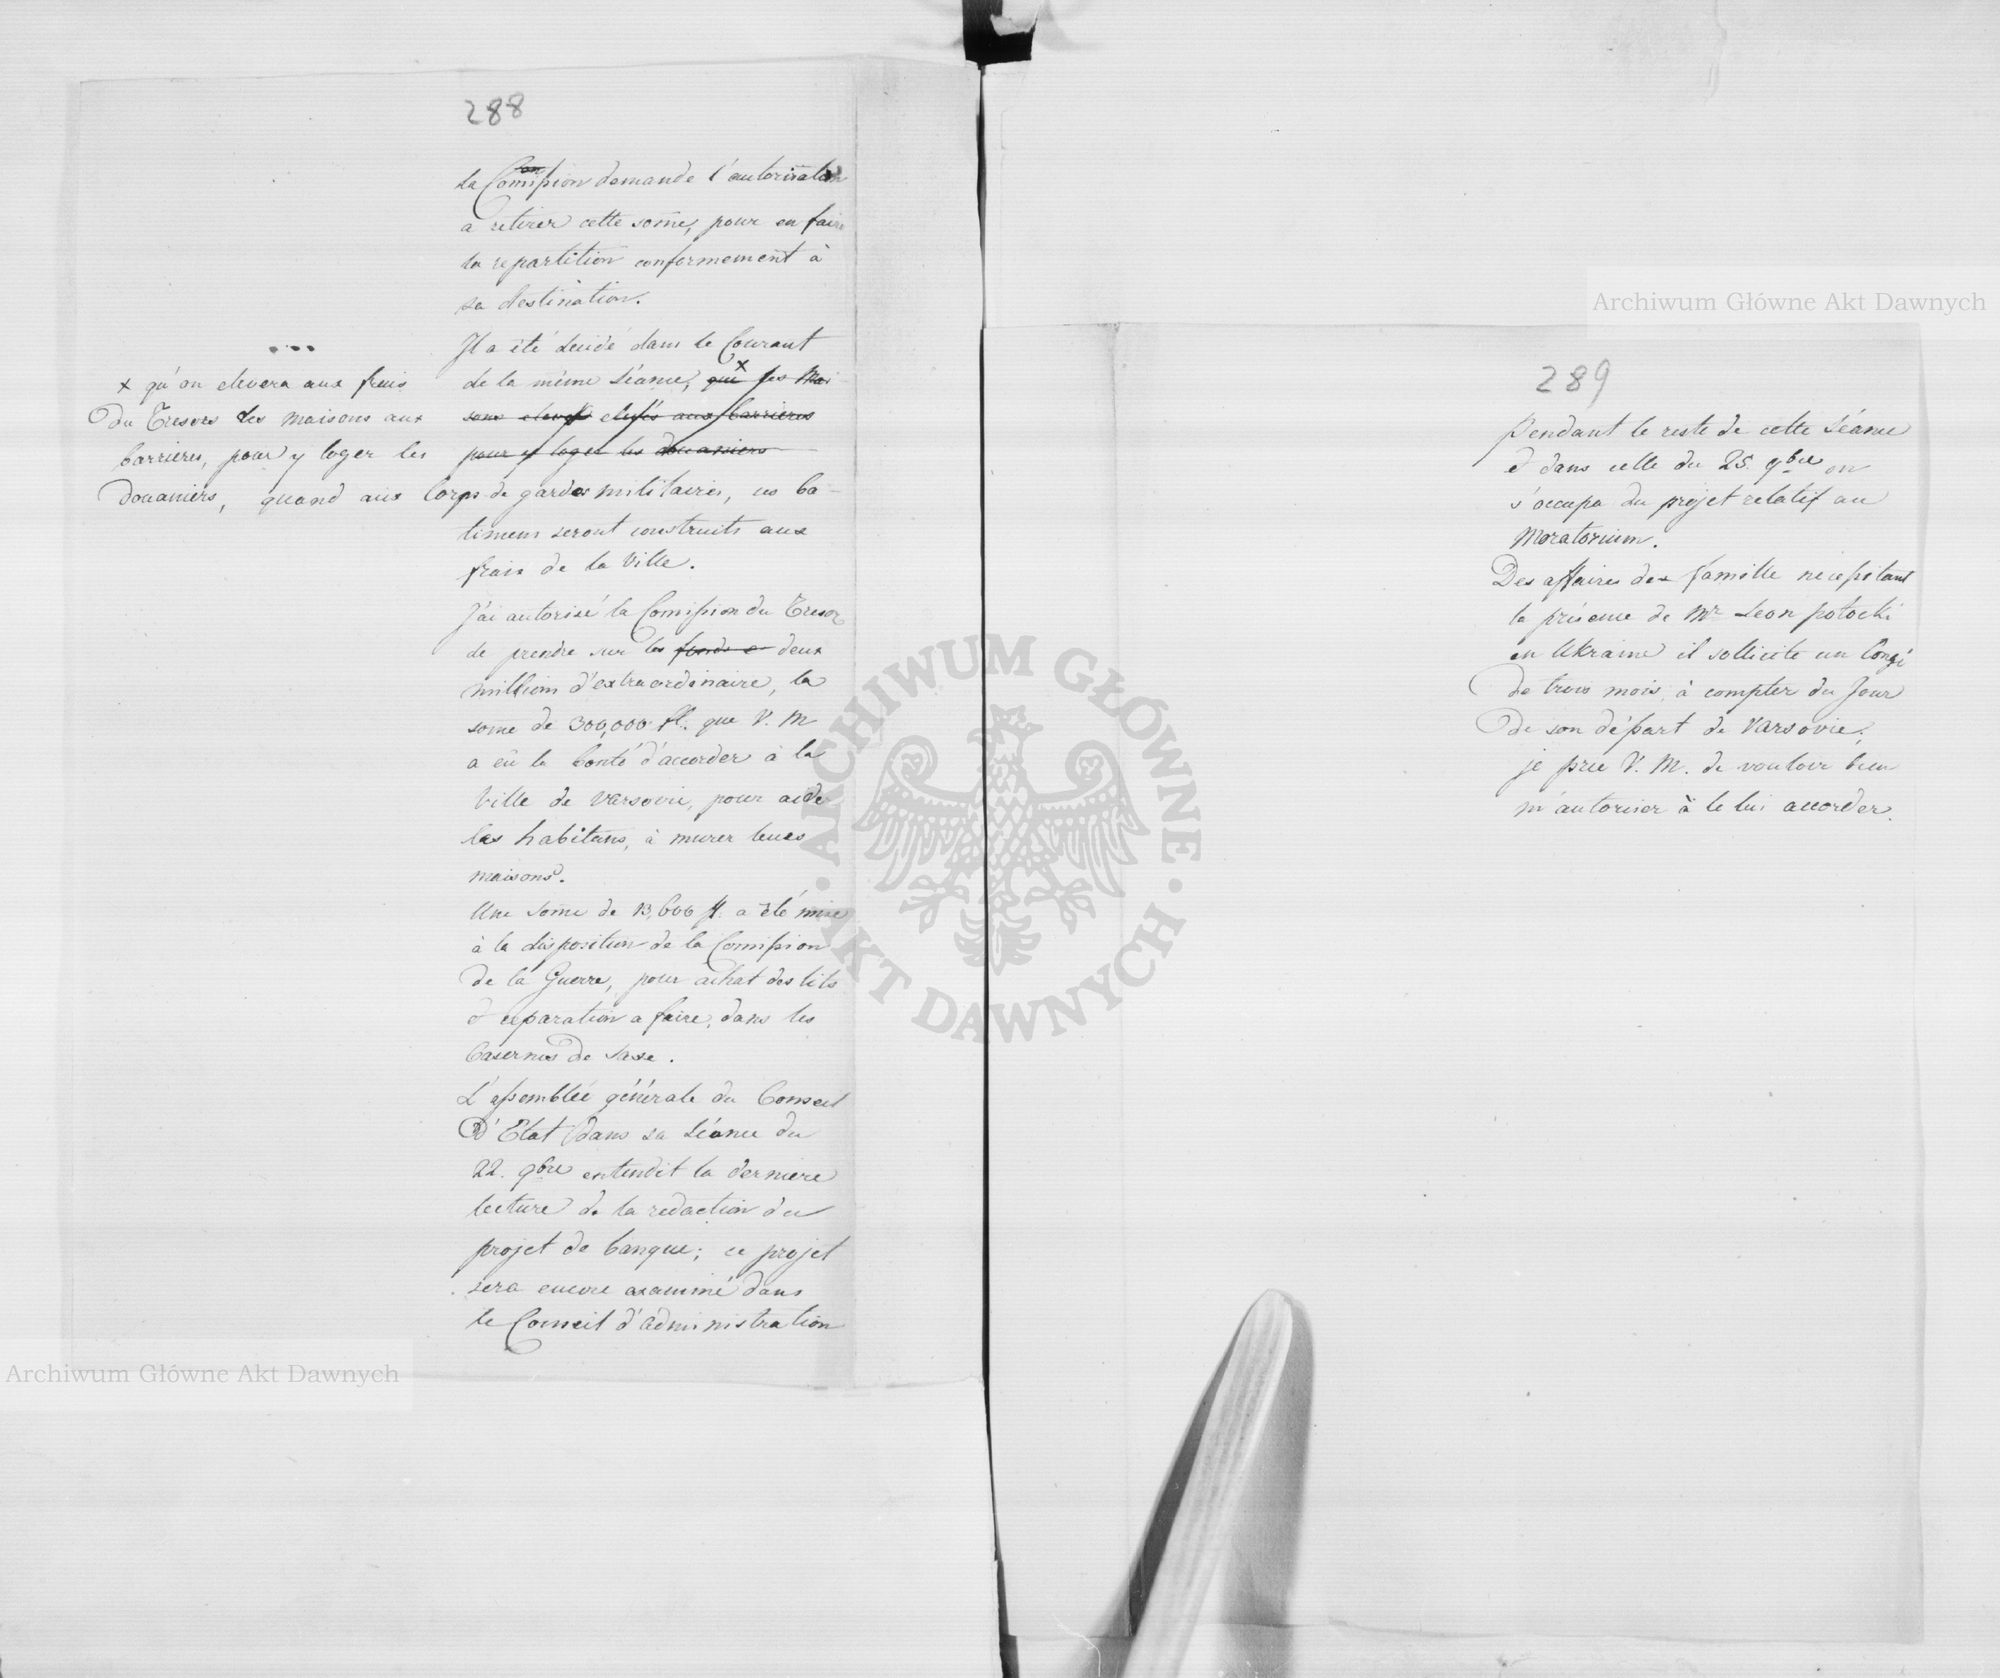 288
la Comission demande l'autorisation
a retirer cette some, pour en faire
la repartition conformement à
sa destination.
Il a été decidé dans le Courant
de la même Séance, que x les Mai
sons elevés aux barrieres
pour y loger les douaniers
x qu'on elevera aux frais
du Tresors des maisons aux
barrieres, pour y loger les
douaniers, quand aux Corps de gardes militaires, ces ba-
timens seront construits aux
frais de la Ville.
J'ai autorisé la Comission du Tresor
de prendre sur les fonds deux
millions d'extraordinaire, la
some de 300,000 fl. que V. M
a eû la bonté d'accorder à la
Ville de Varsovie, pour aider
les habitans, à murer leurs
maisons.
Une some de 13,600 fl. a été mise
à la disposition de la Comission
de la Guerre, pour achat des lits
et reparation a faire, dans les
Casernes de Saxe.
L'assemblée générale du Conseil
D'Etat dans sa Séance du
22. 9bre entendit la derniere
lecture de la redaction du
projet de banque; ce projet
sera encore examiné dans
le Conseil d'administration
289
pendant le reste de cette Séance
et dans celle du 25. 9bre on
s'occupa du projet relatif au
Moratorium.
Des affaires de famille necessitant
la présence de Mr Leon potocki
en Ukraine il sollicite un Congé
de trois mois à compter du Jour
de son départ de Varsovie,
je prie V. M. de vouloir bien
m'autoriser à le lui accorder.
Archiwum Główne Akt Dawnych
Archiwum Główne Akt Dawnych
ARCHIWUM GŁÓWNE
AKT DAWNYCH